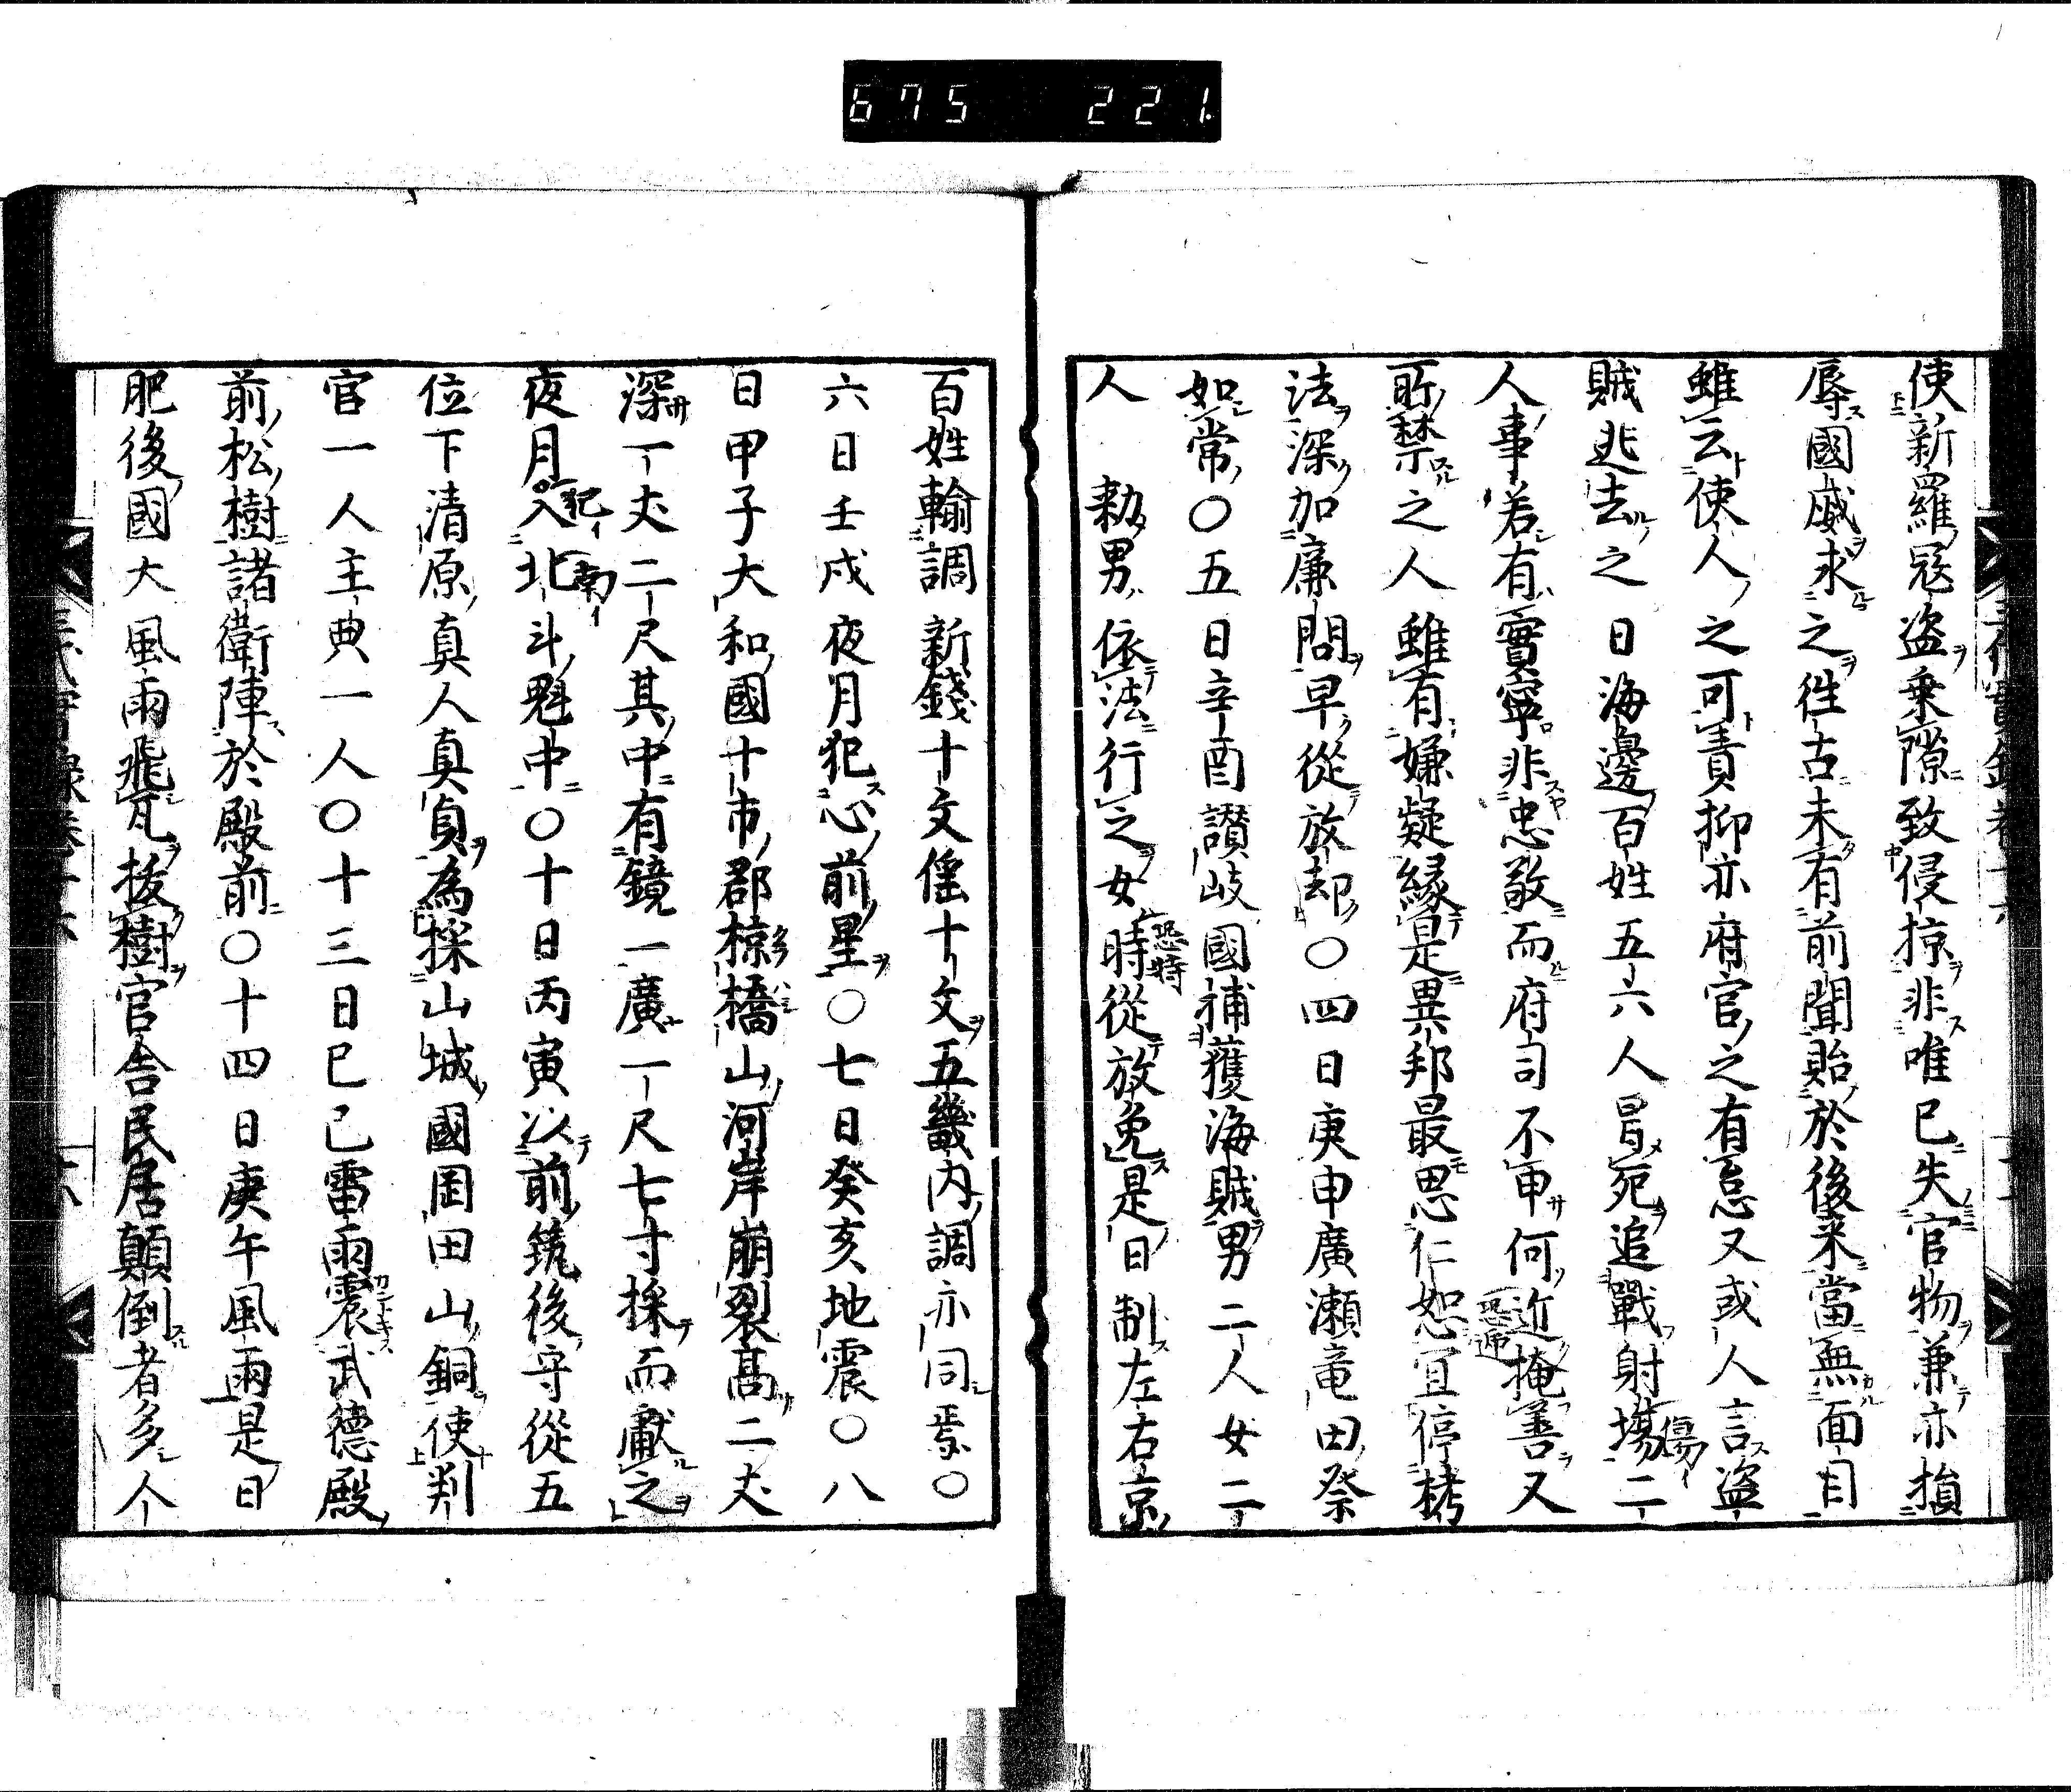 675 221
使新羅寇盗乗隙致侵掠非唯已失官物兼亦損
辱國威求之徃古未有前聞貽於後来當無面目
雖云使人之可責抑亦府官之有怠又或人言盗
賊逃去之日海邊百姓五六人冒死追戰射塲二
傷イ
人事若有實寧非忠敬而府司不申何近掩善又
恐逓
所禁之人雖有嫌疑縁是異邦最思仁恕宜停拷
法深加廉問早從放却〇四日庚申廣瀬竜田祭
如常〇五日辛酉讃岐國捕獲海賊男二人女二
人 勑男依法行之女時從放免是日制左右京
恐特
百姓輸調新錢十文徭十文五畿内調亦同焉〇
六日壬戌夜月犯心前星〇七日癸亥地震〇八
日甲子大和國十市郡椋橋山河岸崩裂高二丈
深一丈二尺其中有鏡一廣一尺七寸採而獻之
夜月入北斗魁中〇十日丙寅以前筑後守從五
犯イ 南イ
位下清原真人真貞為採山城國岡田山銅使判
官一人主典一人〇十三日己巳雷雨震武德殿
前松樹諸衛陣於殿前〇十四日庚午風雨是日
肥後國大風雨飛瓦拔樹官舎民居顛倒者多人